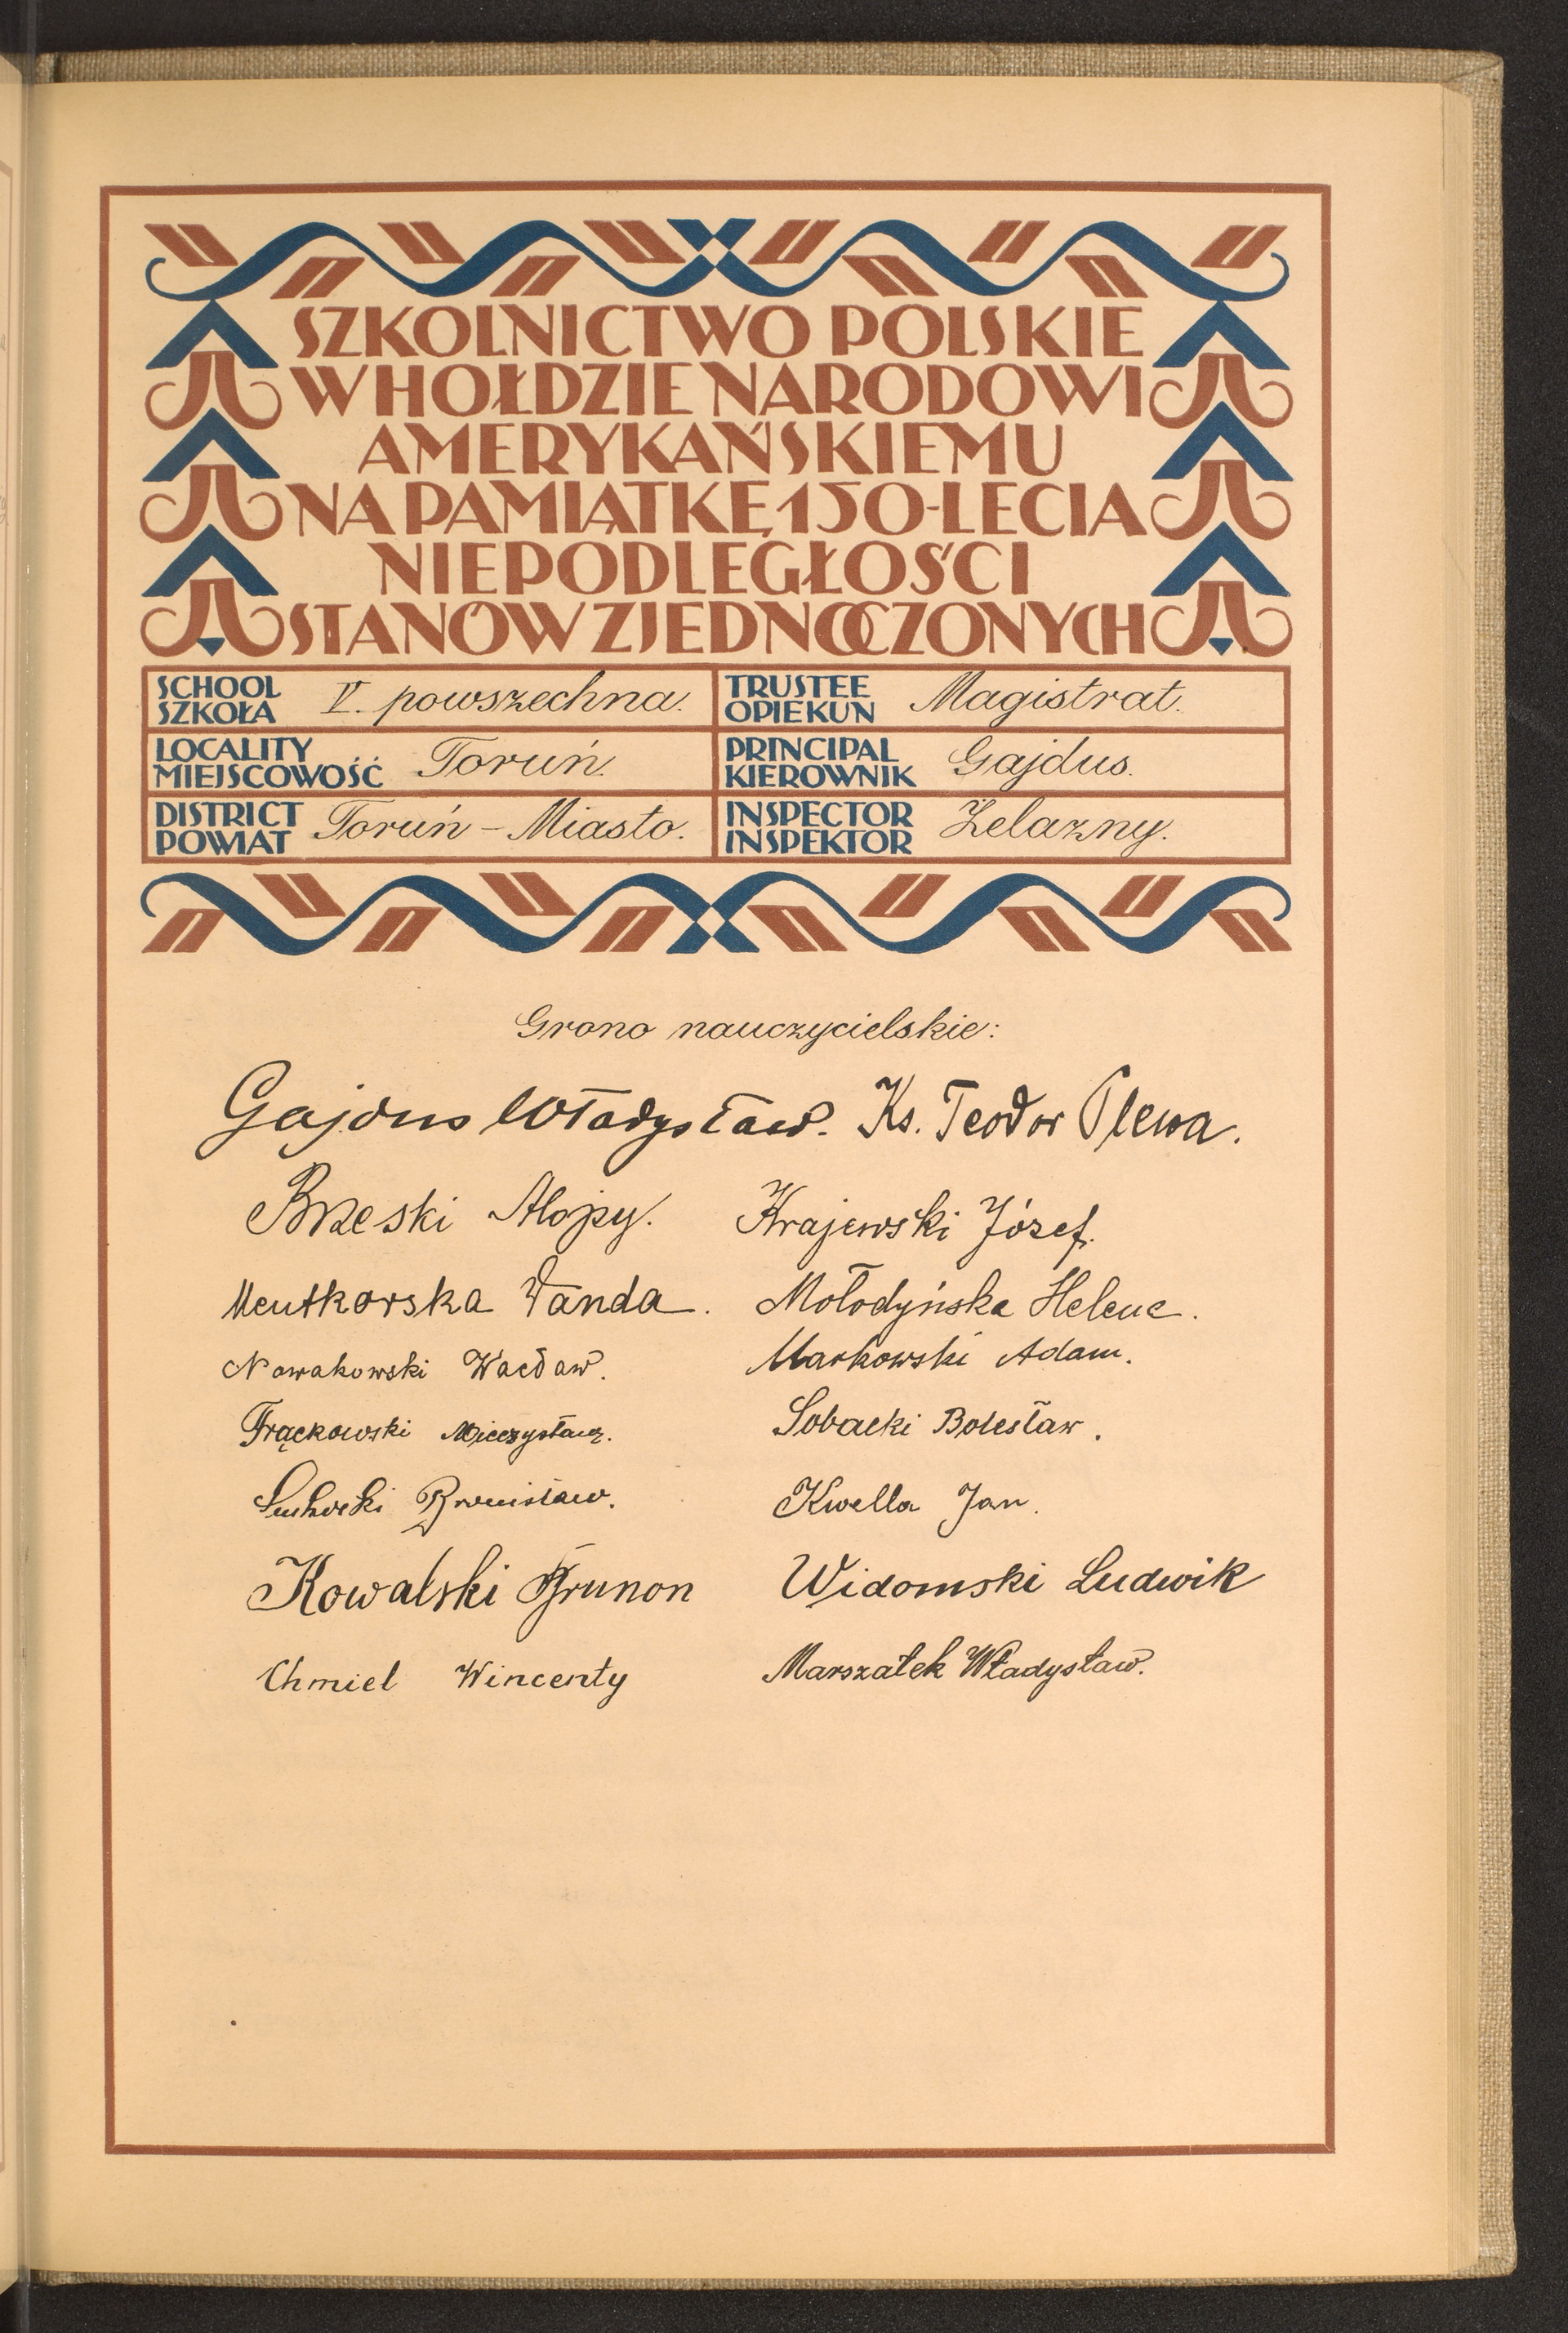 SZKOLNICTWO POLSKIE
W HOŁDZIE NARODOWI
AMERYKAŃSKIEMU
NA PAMIĄTKĘ 150-LECIA
NIEPODLEGŁOŚCI
STANÓW ZJEDNOCZONYCH
SCHOOL SZKOŁA V. powszechna.
TRUSTEE OPIEKUN Magistrat.
LOCALITY MIEJSCOWOŚĆ Toruń.
PRINCIPAL KIEROWNIK Gajdus.
DISTRICT POWIAT Toruń - Miasto.
INSPECTOR INSPEKTOR Żelazny.
Grono nauczycielskie:
Gajdus Władysław. Ks. Teodor Plewa.
Brzeski Alojzy. Krajewski Józef.
Wanda. Mołodyńska Helena.
Nowakowski Wacław. Markowski Adam.
Frąckowski Mieczysław. Sobacki Bolesław.
Bronisław. Kwella Jan.
Kowalski Brunon Widomski Ludwik
Chmiel Wincenty Marszałek Władysław.